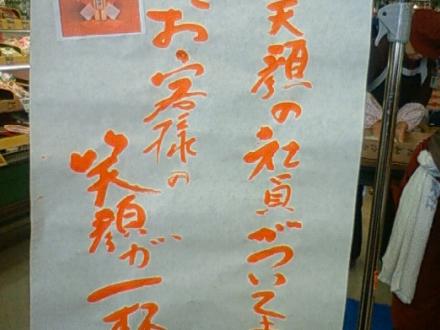 笑顔の社員がついてま
お客様の
笑顔が一杯